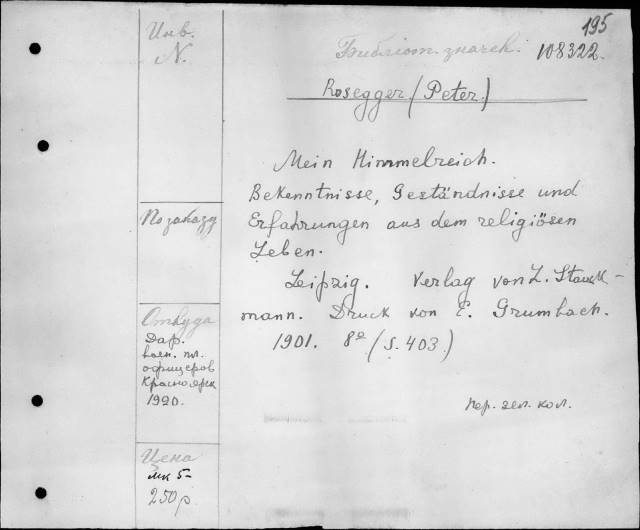 195
Инв.
N.
Библiот. značek. 108322.
Rosegger (Peter.)
Mein Himmelreich.
Bekenntnisse, Geständnisse und
Erfahrungen aus dem religiösen
Leben.
Leipzig. Verlag von L. Staack-
mann. Druck von E. Grumbach.
1901. 8º (S. 403.)
По заказу
Откуда
Дар.
воен. пл.
офицеров
Красноярск
1920.
пер. зел. кол.
Цена
мк 5-
250 р.